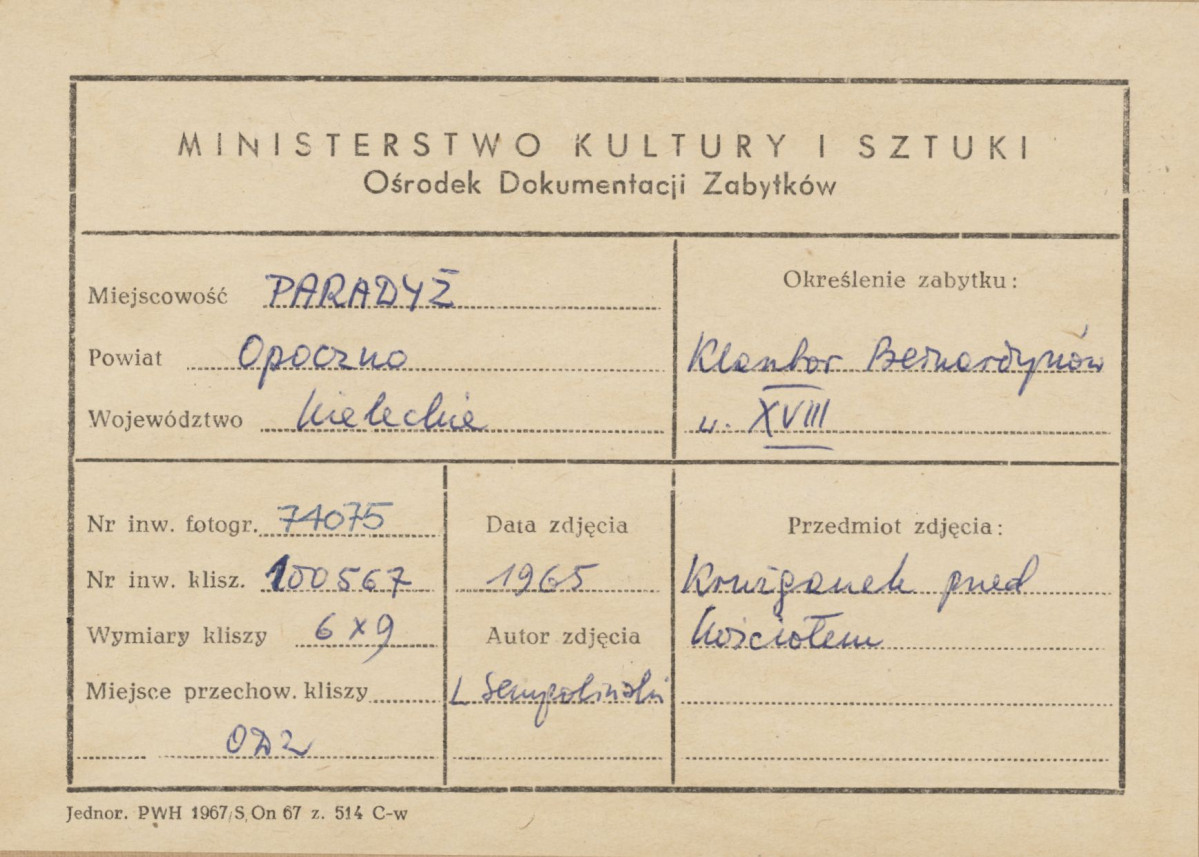 MINISTERSTWO KULTURY I SZTUKI
Ośrodek Dokumentacji Zabytków
Miejscowość PARADYŻ
Powiat Opoczno
Województwo Kieleckie
Określenie zabytku:
Klasztor Bernardynów
w. XVIII
Nr inw. fotogr. 74075
Nr inw. klisz. 100567
Wymiary kliszy 6x9
Miejsce przechow. kliszy
ODZ
Data zdjęcia
1965
Autor zdjęcia
L Sempoliński
Przedmiot zdjęcia:
Krużganek przed
Kościołem
Jednor. PWH 1967/S On 67 z. 514 C-w